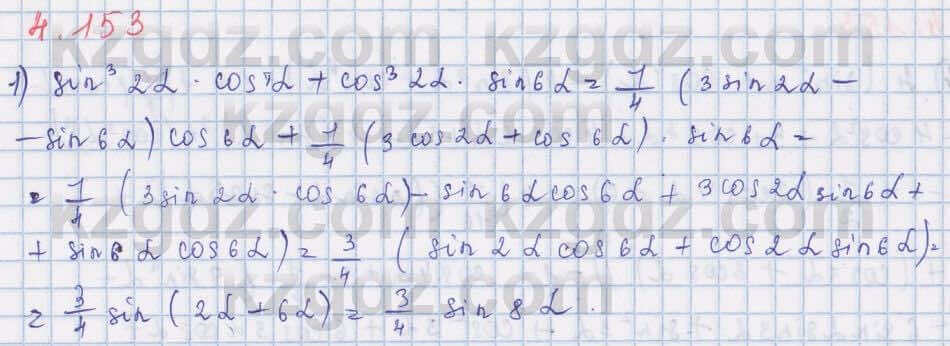 4.153
1) sin³ 2α · cos⁶α + cos³ 2α · sin6α = 1/4 (3 sin2α −
− sin 6α) cos 6α + 1/4 (3 cos2α + cos 6α) · sin6α =
= 1/4 (3sin 2α · cos 6α) − sin 6α cos 6α + 3cos 2α sin6α +
+ sin6α cos6α) = 3/4 (sin 2α cos 6α + cos 2α sin6α) =
= 3/4 sin (2α + 6α) = 3/4 sin 8α.
kzgdz.com